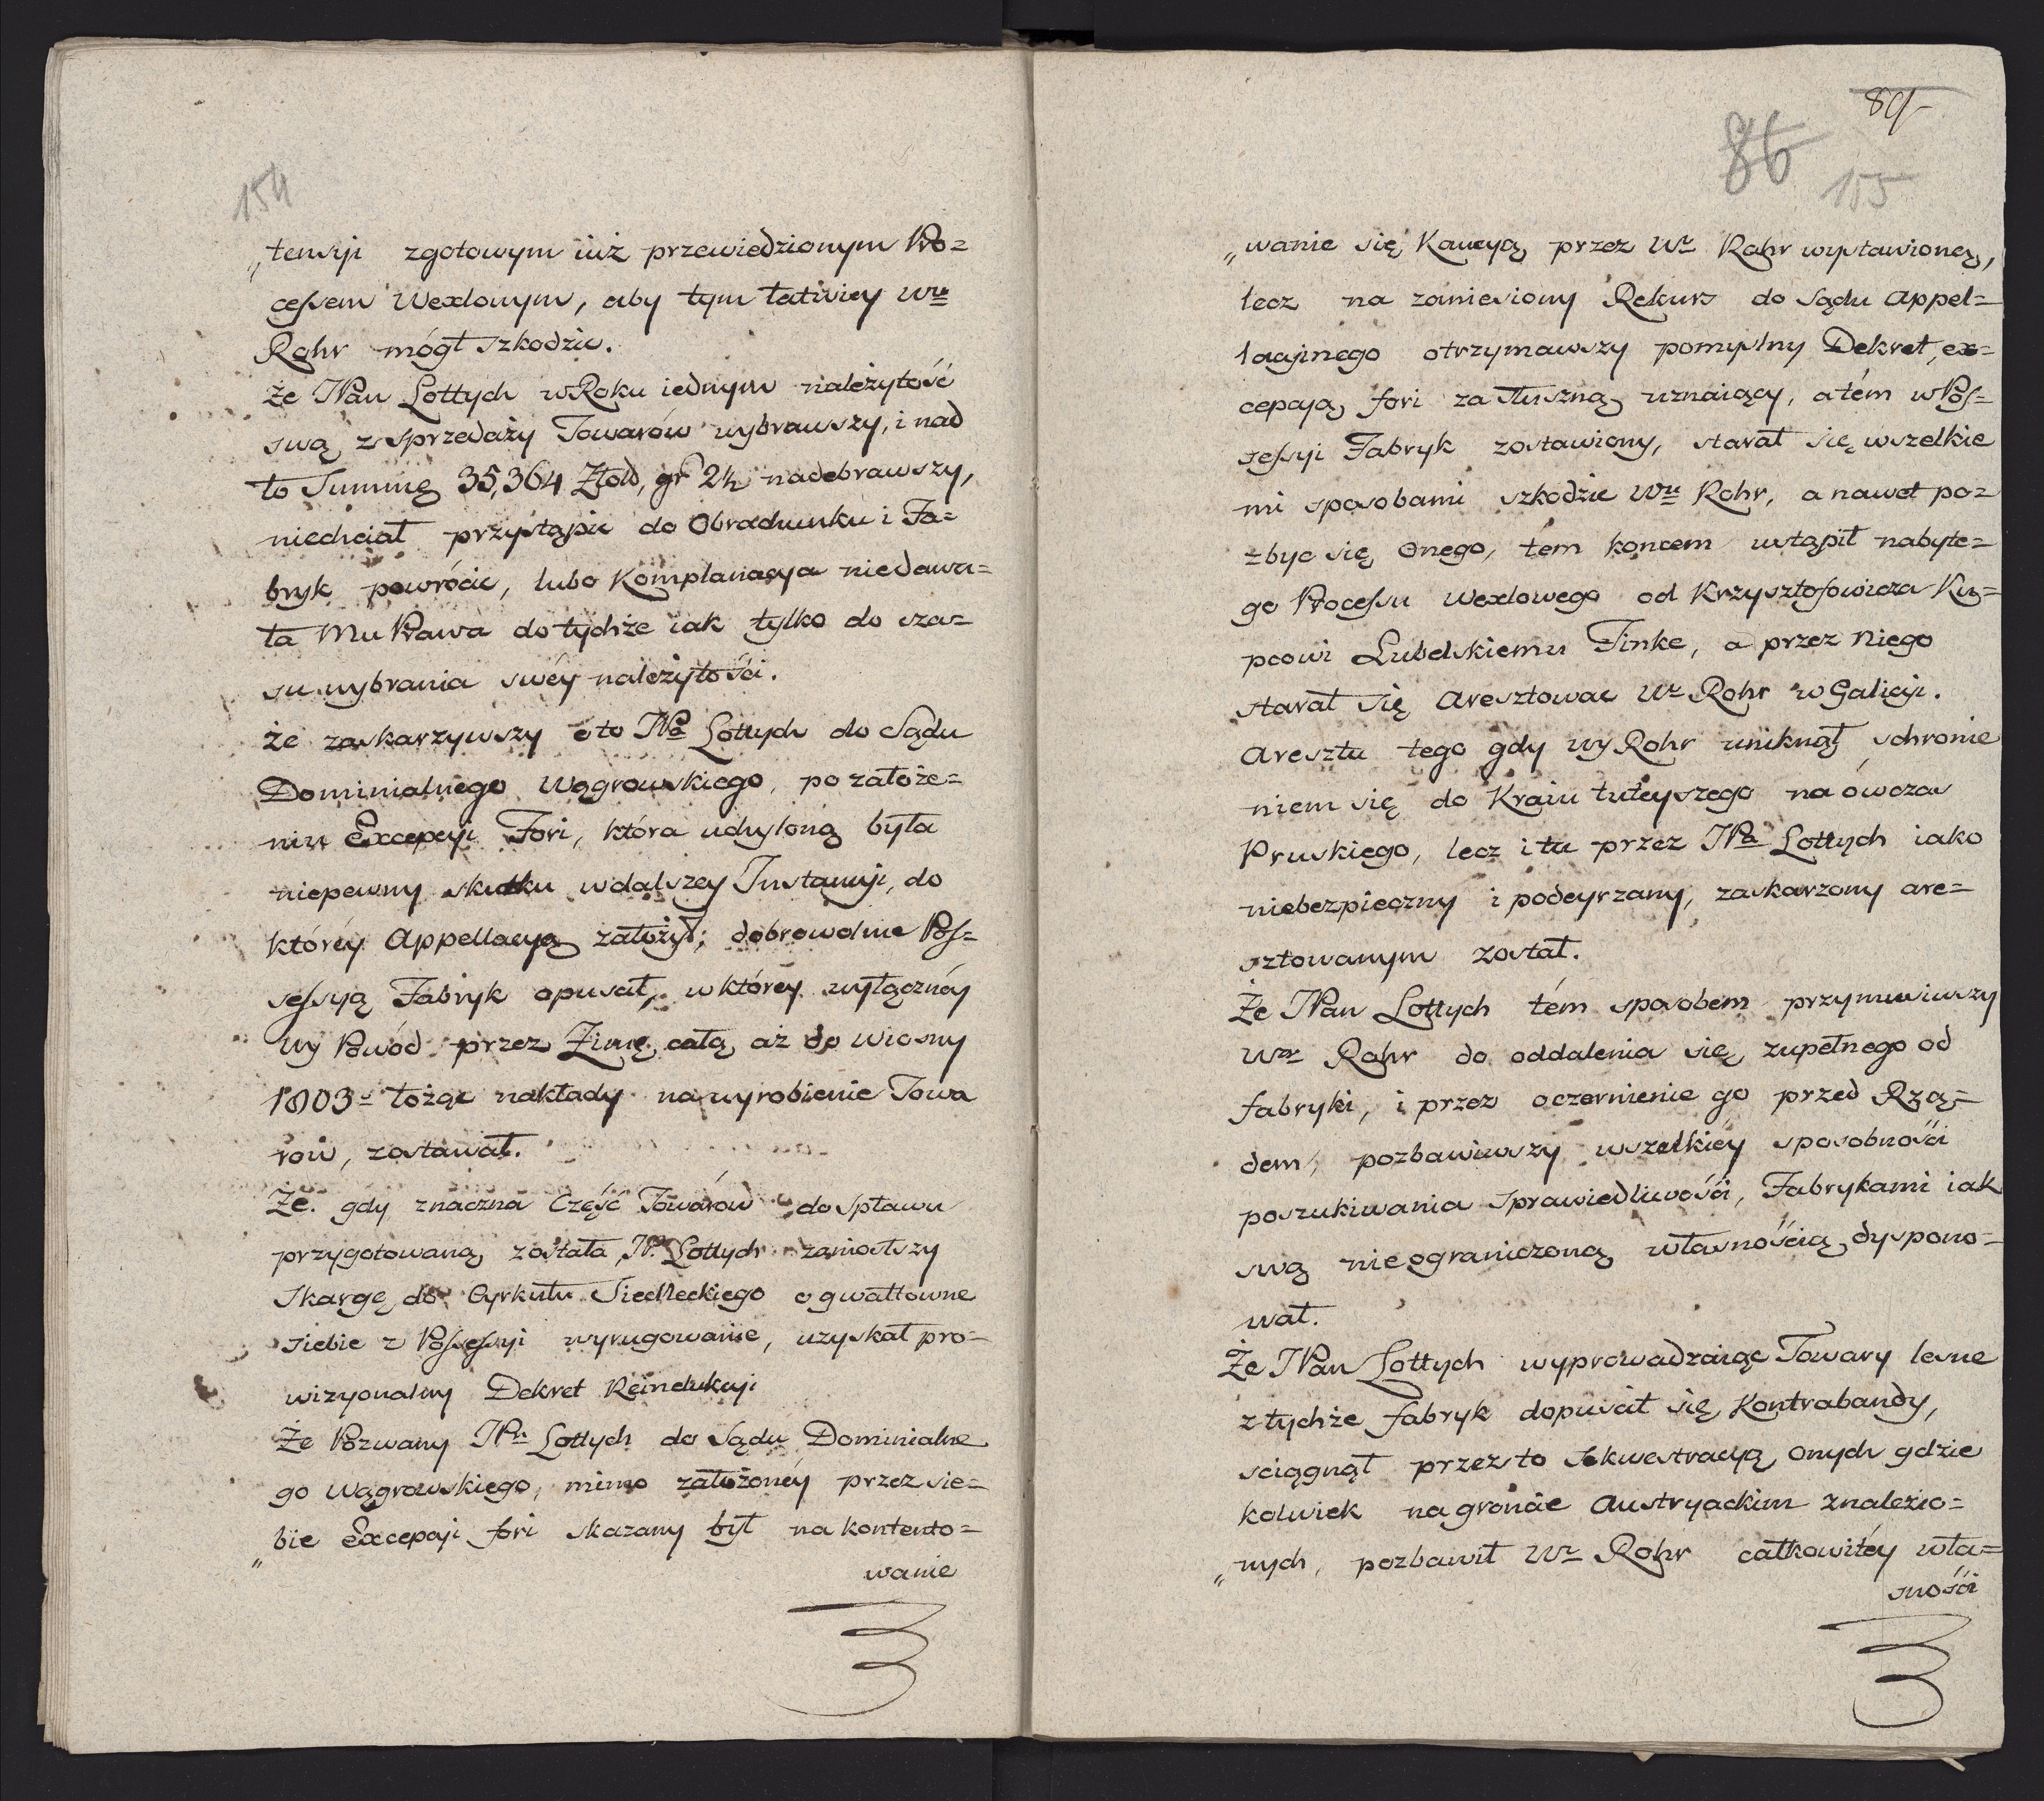 154
„tensyi zgotowym iuż przewiedzionym Pro=
cessem Wexlowym, aby tym łatwiey Wu
Rohr mógł szkodzić.
że JPan Lottych w Roku iednym należytość
swą z sprzedaży Towarów wybrawszy, i nad
to Summę 35,364 Złold, gr 24 nadebrawszy,
niechciał przystąpić do Obrachunku i Fa=
bryk powrócić, lubo Komplanacya niedawa=
ła Mu Prawa do tychże iak tylko do cza=
su wybrania swéy należytości.
że zaskarzywszy oto JPa Lottych do Sądu
Dominialnego Wągrowskiego, po założe=
niu Excepcyi Fori, która uchyloną była
niepewny skutku w dalszey Instancyi, do
któréy Appellacyą założył; dobrowolnie Pos=
sessyą Fabryk opuścił, w któréy wyłącznéy
Wy Powód przez Zimę całą aż do wiosny
1803 łożąc nakłady na wyrobienie Towa
rów, zostawał.
Że gdy znaczna Część Towarów do spławu
przygotowaną została, JP. Lottych zaniosłszy
Skargę do Cyrkułu Siedleckiego o gwałtowne
siebie z Possessyi wyrugowanie, uzyskał pro=
wizyonalny Dekret Reindukcyi
Że Pozwany JPn Lottych do Sądu Dominialne
go Wągrowskiego, mimo założonéy przez sie=
„bie Excepcyi fori skazany był na kontento=
wanie
89
86
155
„wanie się Kaucyą przez Wo Rohr wystawioną,
lecz na zaniesiony Rekurs do Sądu Appel=
lacyinego otrzymawszy pomyslny Dekret, ex=
cepcyą fori za słuszną uznaiący, a tém w Pos=
sessyi Fabryk zostawiony, starał się wszelkie
mi sposobami szkodzić Wu Rohr, a nawet po=
zbyc się Onego, tém koncem ustąpił nabyte=
go Processu Wexlowego od Krzysztofowicza Ku=
pcowi Lubelskiemu Finke, a przez Niego
starał się Aresztowac Wo Rohr w Galicyi.
Aresztu tego gdy Wy Rohr uniknął, schronie
niem się do Kraiu tuteyszego na ówczas
Pruskiego, lecz i tu przez JPa Lottych iako
niebezpieczny i podeyrzany, zaskarzony are=
sztowanym został.
Że JPan Lottych tém sposobem przymusiwszy
Wo Rohr do oddalenia się zupełnego od
fabryki, i przez oczernienie go przed Rzą=
dem, pozbawiwszy wszelkiéy sposobności
poszukiwania sprawiedliwości, Fabrykami iak
swą nieograniczoną własnością dyspono=
wał.
Że JPan Lottych wyprowadzaiąc Towary leśne
z tychże fabryk dopuścił się Kontrabandy,
sciągnął przez to Sekwestracyą Onych gdzie
kolwiek na groncie Austryackim znalezio=
„nych, pozbawił Wo Rohr całkowitéy wła=
sności